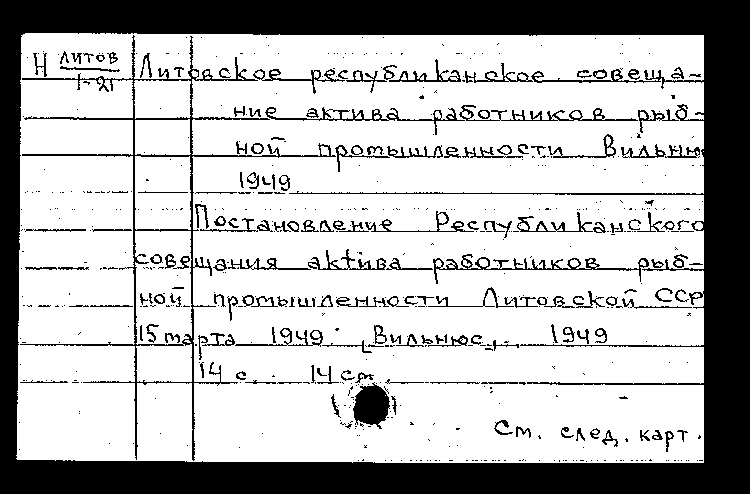 Н ЛИТОВ
1-21
Литовское республиканское совеща-
ние актива работников рыб-
ной промышленности Вильню
1949
Постановление Республиканского
совещания актива работников рыб-
ной промышленности Литовской ССР
15 марта 1949. [Вильнюс], 1949
14 с. 14 см.
См. след. карт.